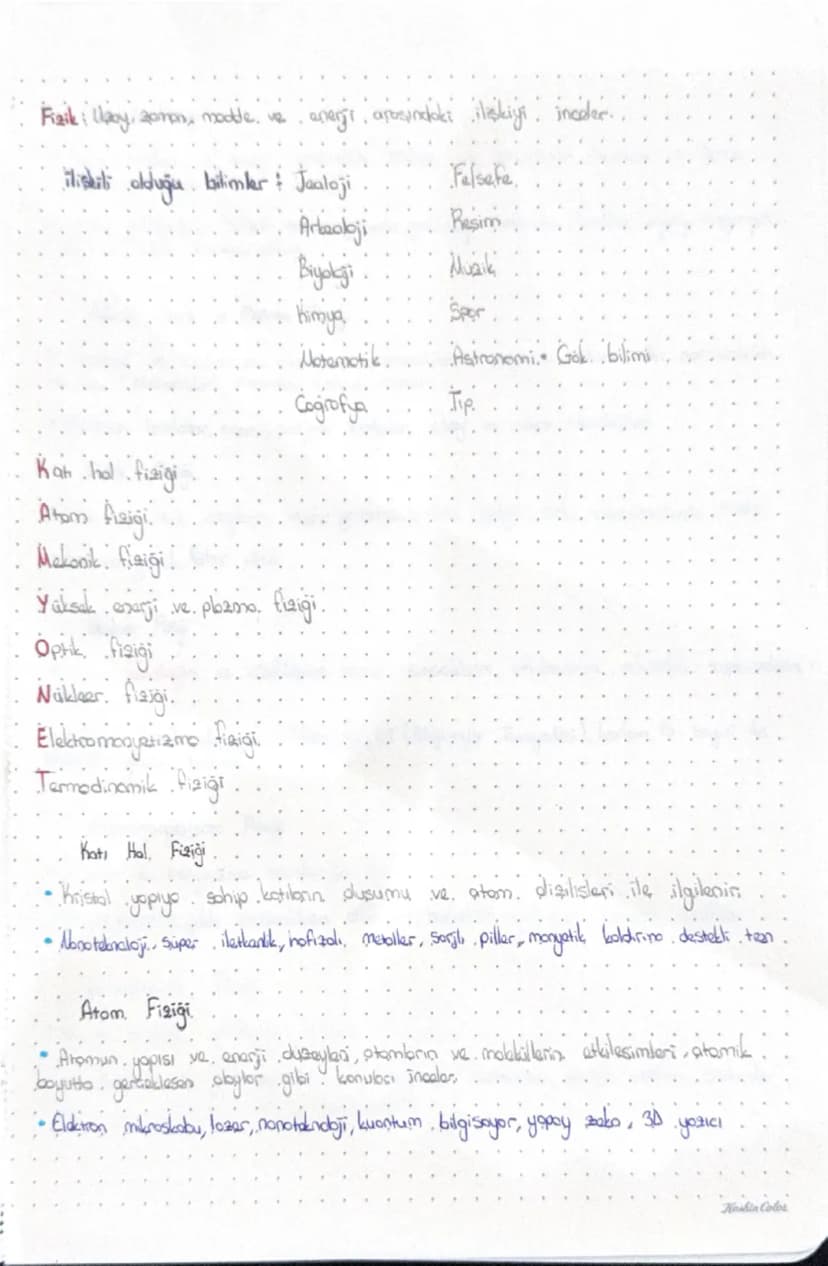 Fizik : Uzay, zaman, madde ve enerji arasındaki ilişkiyi inceler.
ilişkili olduğu bilimler : Jeoloji Felsefe
Arkeoloji Resim
Biyoloji Müzik
Kimya Spor
Matematik Astronomi • Gök bilimi
Coğrafya Tıp
Katı hal fiziği
Atom fiziği
Mekanik fiziği
Yüksek enerji ve plazma fiziği
Optik fiziği
Nükleer fiziği
Elektromanyetizma fiziği
Termodinamik fiziği
Katı Hal Fiziği
• Kristal yapıya sahip katıların ve atom dizilişleri ile ilgilenir.
• Nanoteknoloji, süper iletkenlik, hafızalı metaller, şarjlı piller, manyetik kaldırma destekli tren
Atom Fiziği
• Atomun yapısı ve enerji düzeyleri, atomların ve moleküllerin etkileşimleri, atomik
boyutta gerçekleşen olaylar gibi konuları inceler.
• Elektron mikroskobu, lazer, nanoteknoloji, kuantum bilgisayar, yapay zeka, 3D yazıcı